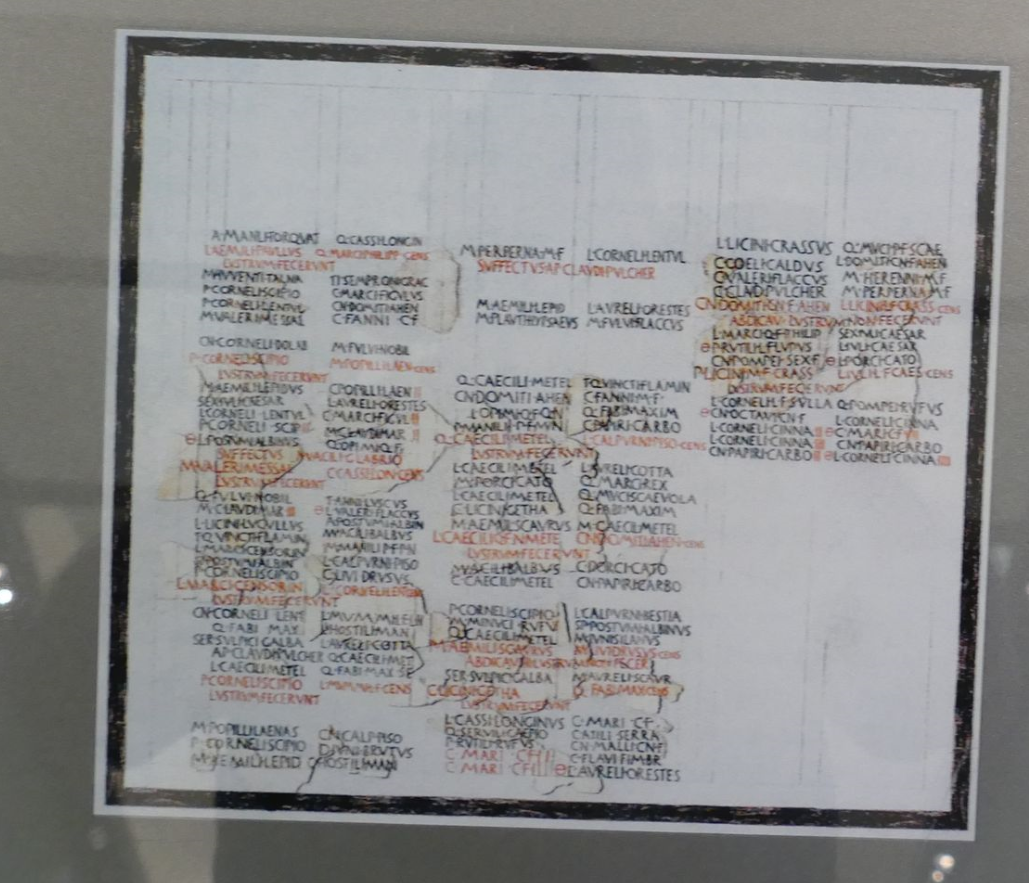 A·MANLI·TORQVAT Q·CASSI·LONGIN
L·AEMILI·PAVLLVS Q·MARCI·PHILIPP·CENS
LVSTRVM·FECERVNT
M·IVVENTI·TALNA TI·SEMPRONI·GRAC
P·CORNELI·SCIPIO C·MARCI·FIGVLVS
P·CORNELI·LENTVL CN·DOMITI·AHEN
M·VALERI·MESSAL C·FANNI·C·F
CN·CORNELI·DOLAB M·FVLVI·NOBIL
P·CORNELI·SCIPIO M·POPILLI·LAEN·CENS
LVSTRVM·FECERVNT
M·AEMILI·LEPIDVS C·POPILLI·LAEN II
SEX·IVLI·CAESAR L·AVRELI·ORESTES
L·CORNELI·LENTVL C·MARCI·FIGVL II
P·CORNELI·SCIP M·CLAVDI·MAR II
Θ L·POSTVMI·ALBINVS Q·OPIMI·Q·F
SVFFECTVS M·ACILI·GLABRIO
M·VALERI·MESSAL C·CASSI·LON·CENS
LVSTRVM·FECERVNT
Q·FVLVI·NOBIL T·ANNI·LVSCVS
M·CLAVDI·MAR III Θ L·VALERI·FLACCVS
L·LICINI·LVCVLLVS A·POSTVMI·ALBIN
T·QVINCTI·FLAMIN M·ACILI·BALBVS
L·MARCI·CENSORIN M·MANILI·P·F·P·N
POSTVMI·ALBIN L·CALPVRNI·PISO
P·CORNELI·SCIPIO C·LIVI·DRVSVS
L·MARCI·CENSORIN L·CORNELI·LENTVL
LVSTRVM·FECERVNT
CN·CORNELI·LENT L·MVMMI
Q·FABI·MAX L·HOSTILI·MAN
SER·SVLPICI·GALBA L·AVRELI·COTTA
AP·CLAVDI·PVLCHER Q·CAECILI·MET
L·CAECILI·METEL Q·FABI·MAX·SE
P·CORNELI·SCIPIO L·MVMMI·CENS
LVSTRVM·FECERVNT
M·POPILLI·LAENAS CN·CALP·PISO
P·CORNELI·SCIPIO D·IVNI·BRVTVS
M·AEMILI·LEPID C·HOSTILI·MAN
M·PERPERNA·M·F L·CORNELI·LENTVL
SVFFECTVS·AP·CLAVDI·PVLCHER
M·AEMILI·LEPID L·AVRELI·ORESTES
M·PLAVTI·HYPSAEVS M·FVLVI·FLACCVS
Q·CAECILI·METEL T·QVINCTI·FLAMIN
CN·DOMITI·AHEN C·FANNI·M·F
L·OPIMI·Q·F·Q·N Q·FABI·MAXIM
P·MANILI·P·F·M·N C·PAPIRI·CARBO
Q·CAECILI·METEL L·CALPVRNI·PISO·CENS
LVSTRVM·FECERVNT
L·CAECILI·METEL L·AVRELI·COTTA
M·PORCI·CATO Q·MARCI·REX
L·CAECILI·METEL Q·MVCI·SCAEVOLA
C·LICINI·GETHA Q·FABI·MAXIM
M·AEMILI·SCAVRVS M·CAECILI·METEL
L·CAECILI·Q·F·N·METE CN·DOMITI·AHEN·CENS
LVSTRVM·FECERVNT
M·ACILI·BALBVS C·PORCI·CATO
C·CAECILI·METEL CN·PAPIRI·CARBO
P·CORNELI·SCIPIO L·CALPVRNI·BESTIA
M·MINVCI·RVFV SP·POSTVMI·ALBINVS
Q·CAECILI·METEL M·IVNI·SILANVS
M·AEMILI·SCAVRVS M·LIVI·DRVSVS·CENS
ABDICAV
SER·SVLPICI·GALBA M·AVRELI·SCAVR
C·LICINI·GETHA Q·FABI·MAX·CENS
LVSTRVM·FECERVNT
L·CASSI·LONGINVS C·MARI·C·F
Q·SERVILI·CAEPIO C·ATILI·SERRA
P·RVTILI·RVFVS CN·MALLI·CN·F
C·MARI·C·F·II C·FLAVI·FIMBR
C·MARI·C·F·III Θ L·AVRELI·ORESTES
L·LICINI·CRASSVS Q·MVCI·P·F·SCAE
C·COELI·CALDVS L·DOMITI·CN·F·AHEN
C·VALERI·FLACCVS M·HERENNI·M·F
C·CLAVDI·PVLCHER M·PERPERNA·M·F
CN·DOMITI·CN·F·AHEN L·LICINI·CRASS·CENS
ABDICAV·LVSTRVM·NON·FECERVNT
L·MARCI·Q·F·PHILIP SEX·IVLI·CAESAR
Θ P·RVTILI·L·F·LVPVS L·IVLI·CAESAR
CN·POMPEI·SEX·F Θ L·PORCI·CATO
P·LICINI·M·F·CRASS L·IVLI·L·F·CAES·CENS
LVSTRVM·FECERVNT
L·CORNELI·L·F·SVLLA Q·POMPEI·RVFVS
Θ CN·OCTAVI·CN·F L·CORNELI·CINNA
L·CORNELI·CINNA II Θ C·MARI·C·F·VII
L·CORNELI·CINNA III CN·PAPIRI·CARBO
CN·PAPIRI·CARBO II Θ L·CORNELI·CINNA IIII